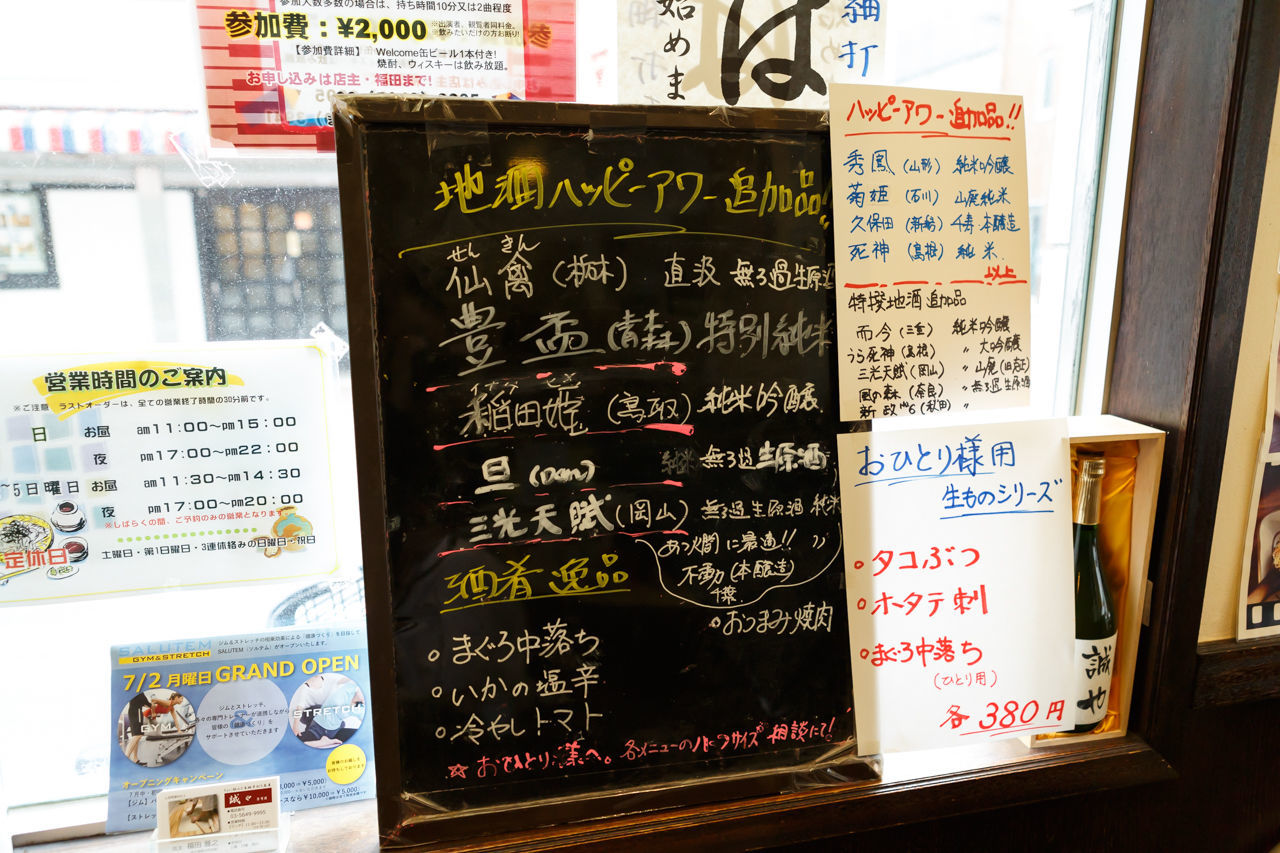 参加人数多数の場合は、持ち時間10分又は2曲程度
参加費：¥2,000
※出演者、観覧者同料金。
※飲みたいだけの方お断り!
【参加費詳細】 Welcome缶ビール1本付き!
焼酎、ウィスキーは飲み放題。
お申し込みは店主・福田まで!
始めま
は
細打
営業時間のご案内
※ご注意 ラストオーダーは、全ての営業終了時間の30分前です。
日 お昼 am11:00〜pm15:00
夜 pm17:00〜pm22:00
〜5日曜日 お昼 am11:30〜pm14:30
夜 pm17:00〜pm20:00
※しばらくの間、ご予約のみの営業となります。
定休日
土曜日・第1日曜日・3連休絡みの日曜日・祝日
SALUTEM
GYM&STRETCH
ジム&ストレッチの相乗効果による「健康づくり」を目指して
SALUTEM（ソルテム）がオープンいたします。
7/2 月曜日 GRAND OPEN
GYM
&
STRETCH
ジムとストレッチ、
各々の専門トレーナーが連携しながら
皆様の「健康づくり」を
サポートさせていただきます
オープニングキャンペーン
誠や
03-5649-9995
地酒ハッピーアワー追加品!!
せん きん
仙禽（栃木） 直汲 無ろ過生原酒
豊盃（青森）特別純米
稲田姫（鳥取）純米吟醸
旦（Dan） 純米 無ろ過生原酒
三光天賦（岡山）無ろ過生原酒 純米
あつ燗に最適!!
不動（本醸造）
千葉
酒肴逸品
○おつまみ焼肉
○まぐろ中落ち
○いかの塩辛
○冷やしトマト
☆おひとり様へ。各メニューのハーフサイズ相談にて!
ハッピーアワー追加品!!
秀鳳（山形） 純米吟醸
菊姫（石川） 山廃純米
久保田（新潟） 千寿 本醸造
死神（島根） 純米
以上
特撰地酒 追加品
而今（三重） 純米吟醸
うら死神（島根） 〃 大吟醸
三光天賦（岡山） 〃 山廃
風の森（奈良） 〃 無ろ過生原酒
新政No6（秋田） 〃
おひとり様用
生ものシリーズ
○タコぶつ
○ホタテ刺
○まぐろ中落ち
（ひとり用）
各380円
誠や